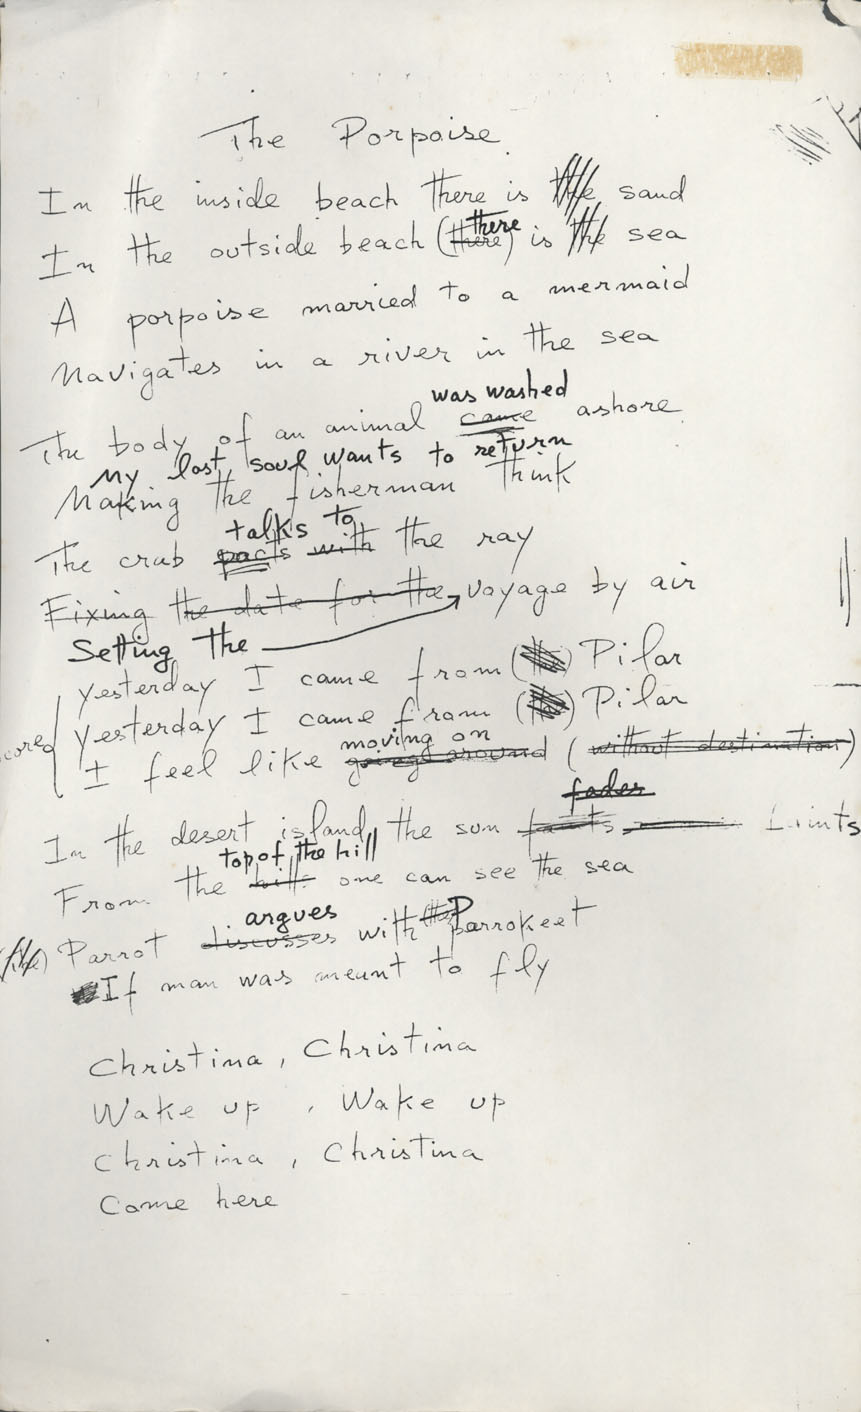 The Porpoise
In the inside beach there is the sand
there
In the outside beach (there) is the sea
A porpoise married to a mermaid
Navigates in a river in the sea
was washed
The body of an animal came ashore
My lost soul wants to return
Making the fisherman think
talks to
The crab pacts with the ray
Fixing the date for the voyage by air
Setting the
Yesterday I came from (the) Pilar
Yesterday I came from (the) Pilar
moving on
I feel like going around (without destination)
fades
In the desert island, the sun faints
top of the hill
From the hill one can see the sea
argues
(the) Parrot discusses with the Parrokeet
If man was meant to fly
Christina, Christina
Wake up, Wake up
Christina, Christina
Come here